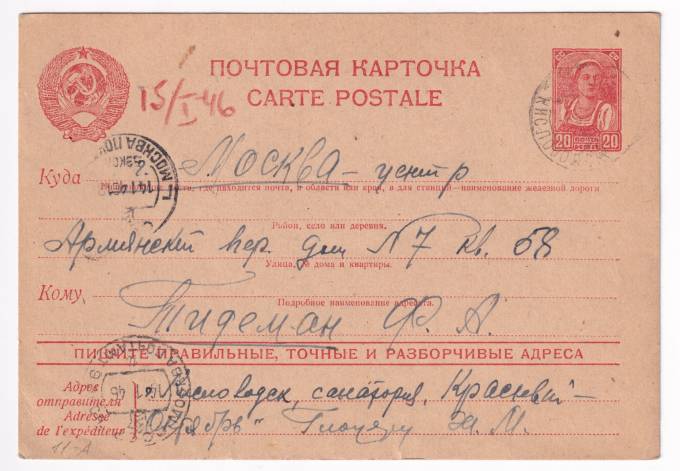 ПОЧТОВАЯ КАРТОЧКА
CARTE POSTALE
15/I 46
20 ПОЧТА 20
МОСКВА
Куда Москва – центр
где находится почта, и области или края, а для станций—наименование железной дороги
Район, село или деревня.
Армянский пер. дом N 7 кв. 58
Улица, № дома и квартиры.
Кому
Подробное наименование адресата.
Тидеман Ф. А.
ПИШИТЕ ПРАВИЛЬНЫЕ, ТОЧНЫЕ И РАЗБОРЧИВЫЕ АДРЕСА
Адрес отправителя Кисловодск, санатория, „Красный –
Adresse de l'expéditeur Октябрь"
11-А